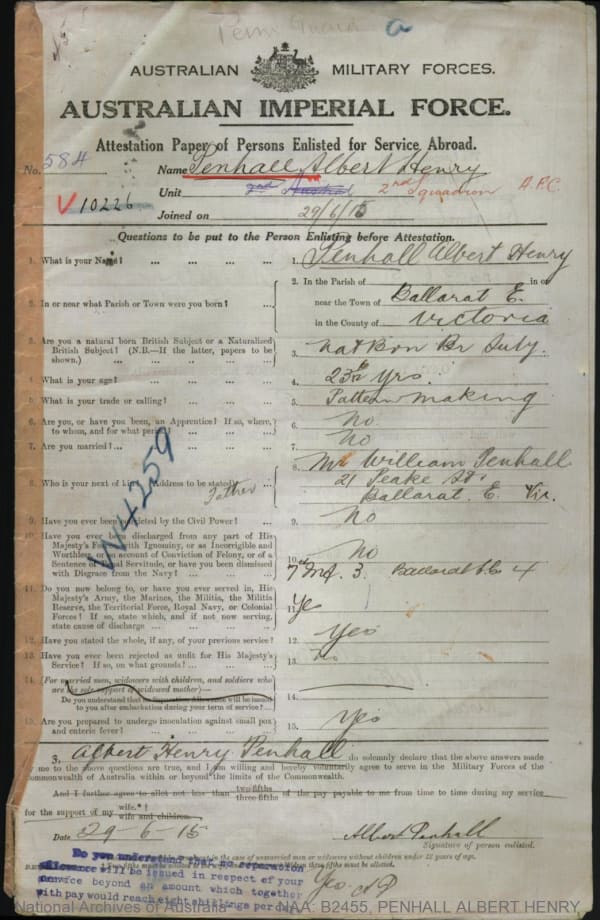 a
AUSTRALIAN MILITARY FORCES.
AUSTRALIAN IMPERIAL FORCE.
Attestation Paper of Persons Enlisted for Service Abroad.
No. 584 Name Penhall Albert Henry
Unit 2nd Squadron A.F.C.
V 10226
Joined on 29/6/15
Questions to be put to the Person Enlisting before Attestation.
1. What is your Name? ... ... ... ... 1. Penhall Albert Henry
2. In or near what Parish or Town were you born? ... 2. In the Parish of in or
near the Town of Ballarat E.
in the County of Victoria
3. Are you a natural born British Subject or a Naturalized
British Subject? (N.B.—If the latter, papers to be
shown.) ... ... ... ... 3. Nat Bon Br Subj.
4. What is your age? ... ... ... ... 4. 23 yrs.
5. What is your trade or calling? ... ... ... 5. Pattern making
6. Are you, or have you been, an Apprentice? If so, where,
to whom, and for what period? ... ... ... 6. No
7. Are you married? ... ... ... ... 7. No
8. Who is your next of kin? (Address to be stated) ... 8. Mr William Penhall
Father 21 Peake St.
Ballarat. E. Vic.
W4259
9. Have you ever been convicted by the Civil Power? ... 9. No
10. Have you ever been discharged from any part of His
Majesty's Forces with Ignominy, or as Incorrigible and
Worthless, or on account of Conviction of Felony, or of a
Sentence of Penal Servitude, or have you been dismissed
with Disgrace from the Navy? ... ... ... 10. No
11. Do you now belong to, or have you ever served in, His
Majesty's Army, the Marines, the Militia, the Militia
Reserve, the Territorial Force, Royal Navy, or Colonial
Forces? If so, state which, and if not now serving,
state cause of discharge ... ... ... 11. Yes
Inf. 3. Ballarat 4
12. Have you stated the whole, if any, of your previous service? 12. Yes
13. Have you ever been rejected as unfit for His Majesty's
Service? If so, on what grounds? ... ... ... 13. No
14. (For married men, widowers with children, and soldiers who
are the sole support of widowed mother)—
Do you understand that no Separation Allowance will be issued
to you after embarkation during your term of service? ... 14.
15. Are you prepared to undergo inoculation against small pox
and enteric fever? ... ... ... ... 15. Yes
3. Albert Henry Penhall do solemnly declare that the above answers made
me to the above questions are true, and I am willing and hereby voluntarily agree to serve in the Military Forces of the
Commonwealth of Australia within or beyond the limits of the Commonwealth.
And I further agree to allot not less than two-fifths
three-fifths of the pay payable to me from time to time during my service
for the support of my wife.*†
wife and children.
Date 29-6-15 Albert Penhall
Signature of person enlisted.
in the case of unmarried men or widowers without children under 18 years of age.
must be allotted.
Do you understand that no separation
allowance will be issued in respect of your
service beyond an amount which together
with pay would reach eight shillings per day.
Yes. AP
National Archives of Australia NAA: B2455, PENHALL ALBERT HENRY